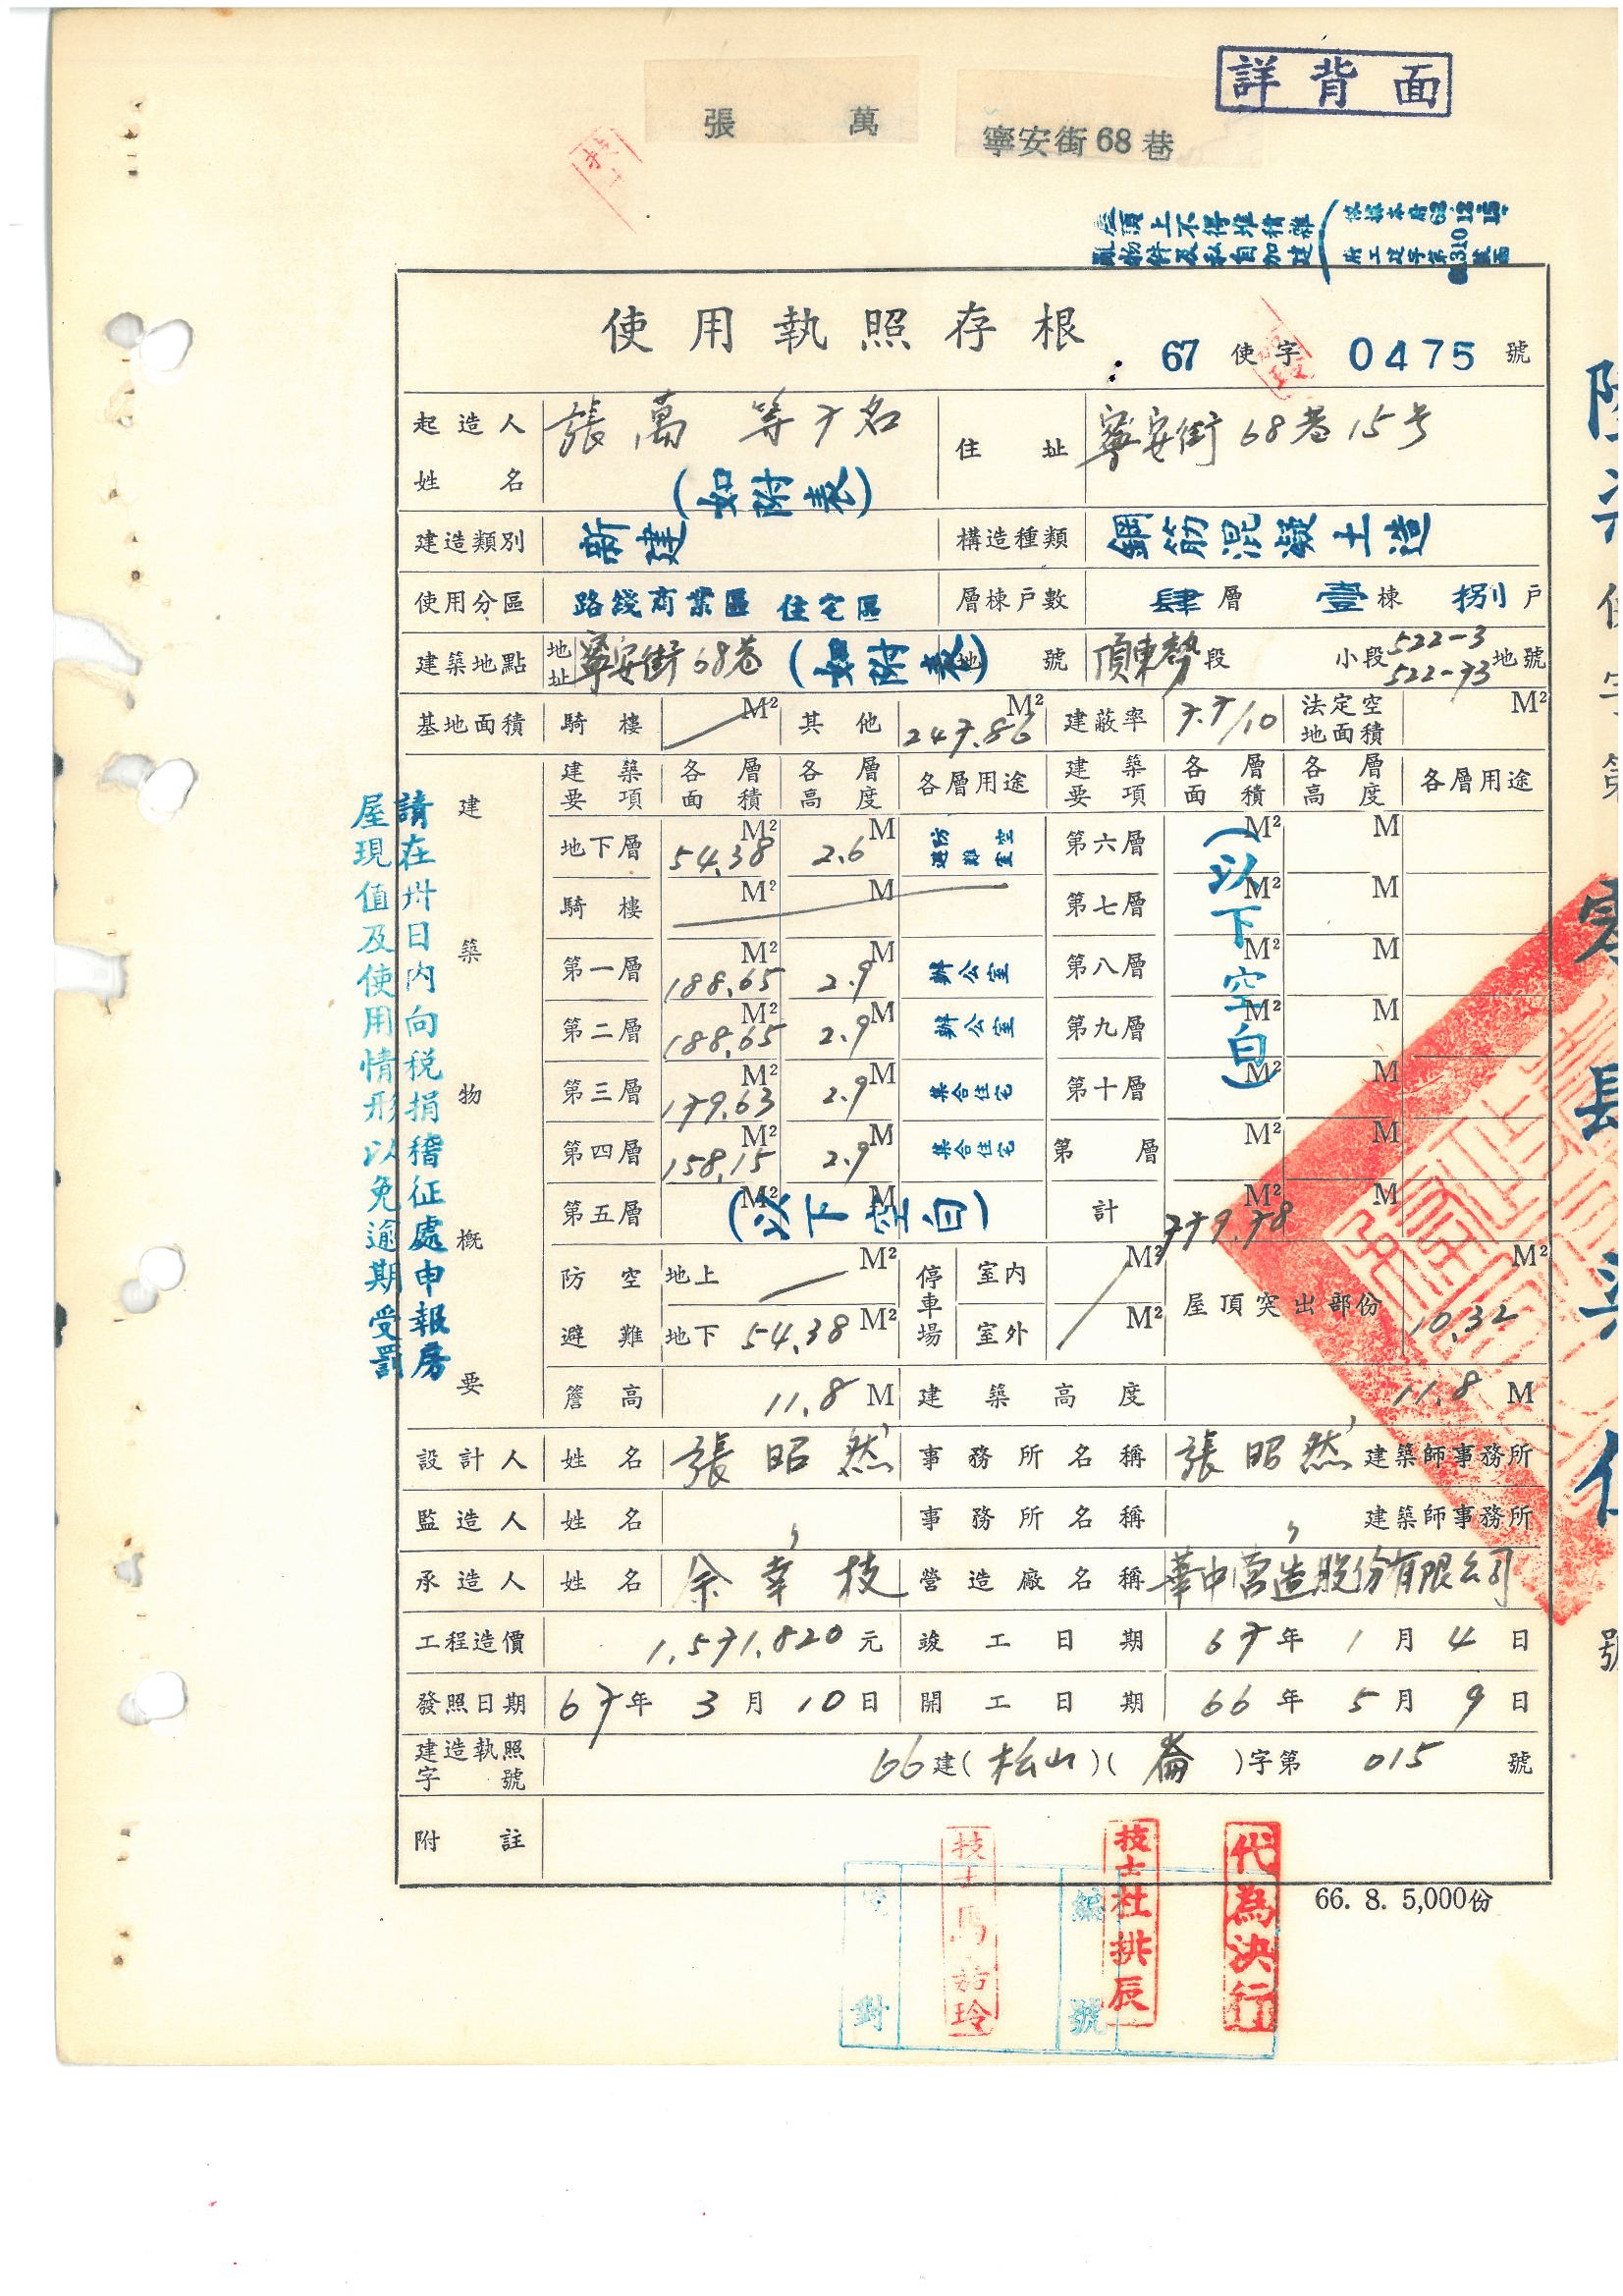 詳背面
張 萬
寧安街68巷
屋頂上不得堆積雜
亂物件及私自加建
使用執照存根 67使字0475號
起造人姓名 張萬等7名 (如附表) 住址 寧安街68巷15号
建造類別 新建 構造種類 鋼筋混凝土造
使用分區 路綫商業區 住宅區 層棟戶數 肆層 壹棟 捌戶
建築地點 地址 寧安街68巷 (如附表) 地號 頂東勢段 小段 522-3 522-73 地號
基地面積 騎樓 M² 其他 247.86 M² 建蔽率 7.7/10 法定空地面積 M²
建築物概要
建築要項 各層面積 各層高度 各層用途 建築要項 各層面積 各層高度 各層用途
地下層 54.38 M² 2.6 M 防空避難室 第六層 M² M
騎樓 M² M 第七層 M² M
第一層 188.65 M² 2.9 M 辦公室 第八層 M² M
第二層 188.65 M² 2.9 M 辦公室 第九層 M² M
第三層 179.63 M² 2.9 M 集合住宅 第十層 M² M
第四層 158.15 M² 2.9 M 集合住宅 第 層 M² M
第五層 M² M (以下空白) 計 779.78 M² M
(以下空白)
防空避難 地上 M² 停車場 室內 M² 屋頂突出部份 10.32 M²
地下 54.38 M² 室外 M²
簷高 11.8 M 建築高度 11.8 M
設計人 姓名 張昭然 事務所名稱 張昭然 建築師事務所
監造人 姓名 〃 事務所名稱 〃 建築師事務所
承造人 姓名 余幸枝 營造廠名稱 華中營造股份有限公司
工程造價 1,571,820元 竣工日期 67年1月4日
發照日期 67年3月10日 開工日期 66年5月9日
建造執照字號 66建(松山)(崙)字第015號
附註
請在卅日內向稅捐稽征處申報房
屋現值及使用情形以免逾期受罰
66. 8. 5,000份
代為決行
編號
對